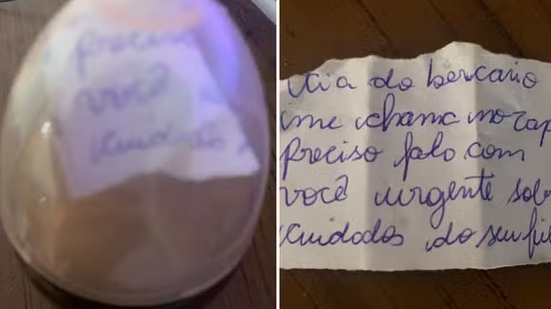 preciso
você
cuidado
tia do bercario
me chama no zap
preciso falo com
você urgente sob
cuidados do seu fil